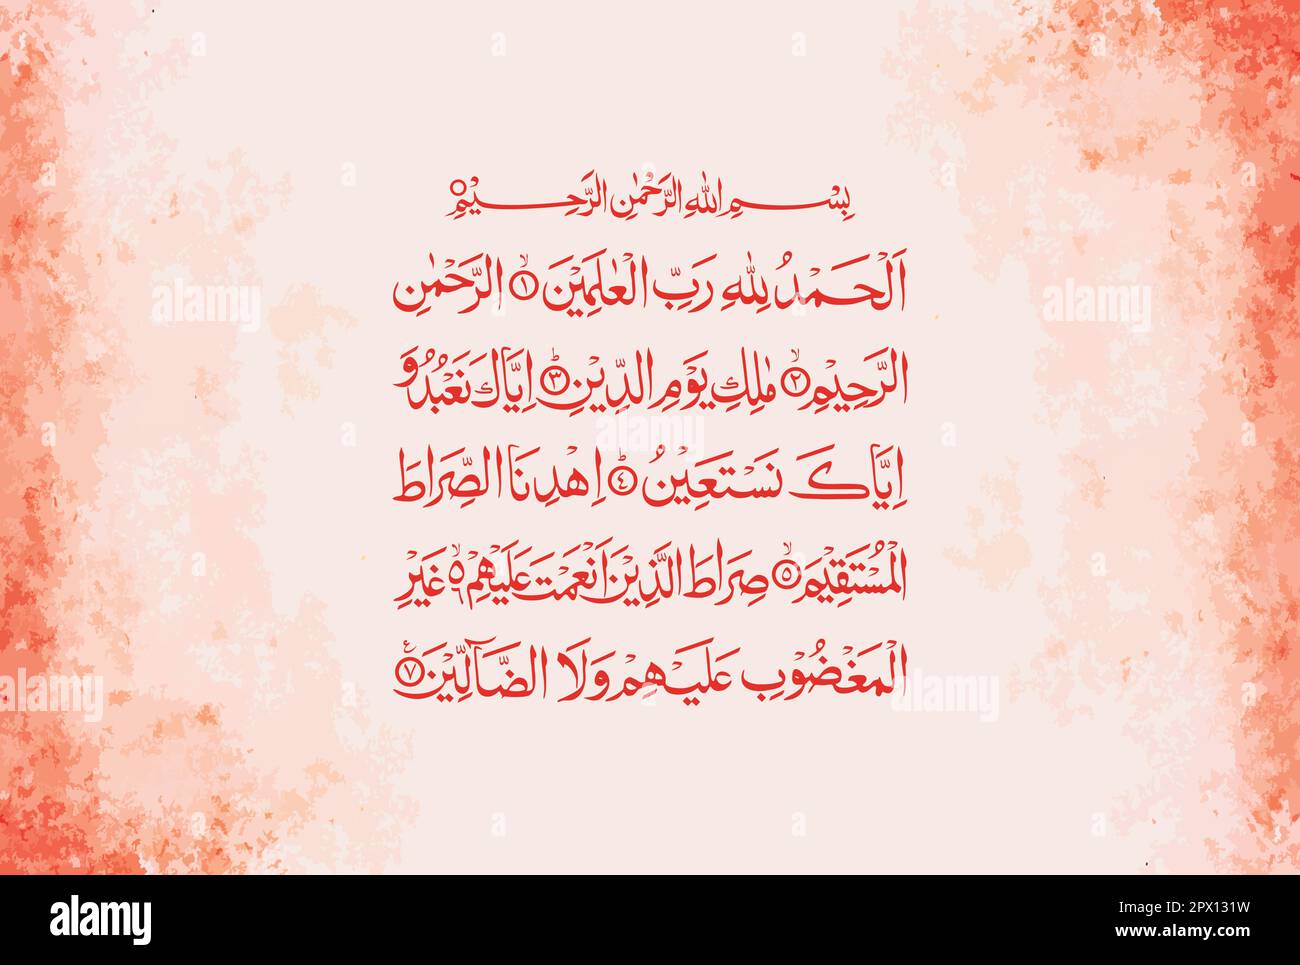 بِسْمِ اللهِ الرَّحْمٰنِ الرَّحِيْمِ
اَلْحَمْدُ لِلّٰهِ رَبِّ الْعٰلَمِيْنَ ۙ﴿۱﴾ الرَّحْمٰنِ
الرَّحِيْمِ ۙ﴿۲﴾ مٰلِكِ يَوْمِ الدِّيْنِ ؕ﴿۳﴾ اِيَّاكَ نَعْبُدُ وَ
اِيَّاكَ نَسْتَعِيْنُ ؕ﴿۴﴾ اِهْدِنَا الصِّرَاطَ
الْمُسْتَقِيْمَ ۙ﴿۵﴾ صِرَاطَ الَّذِيْنَ اَنْعَمْتَ عَلَيْهِمْ ۙ۬ۦ۶ غَيْرِ
الْمَغْضُوْبِ عَلَيْهِمْ وَلَا الضَّآلِّيْنَ ﴿۷﴾
alamy
Image ID: 2PX131W
www.alamy.com